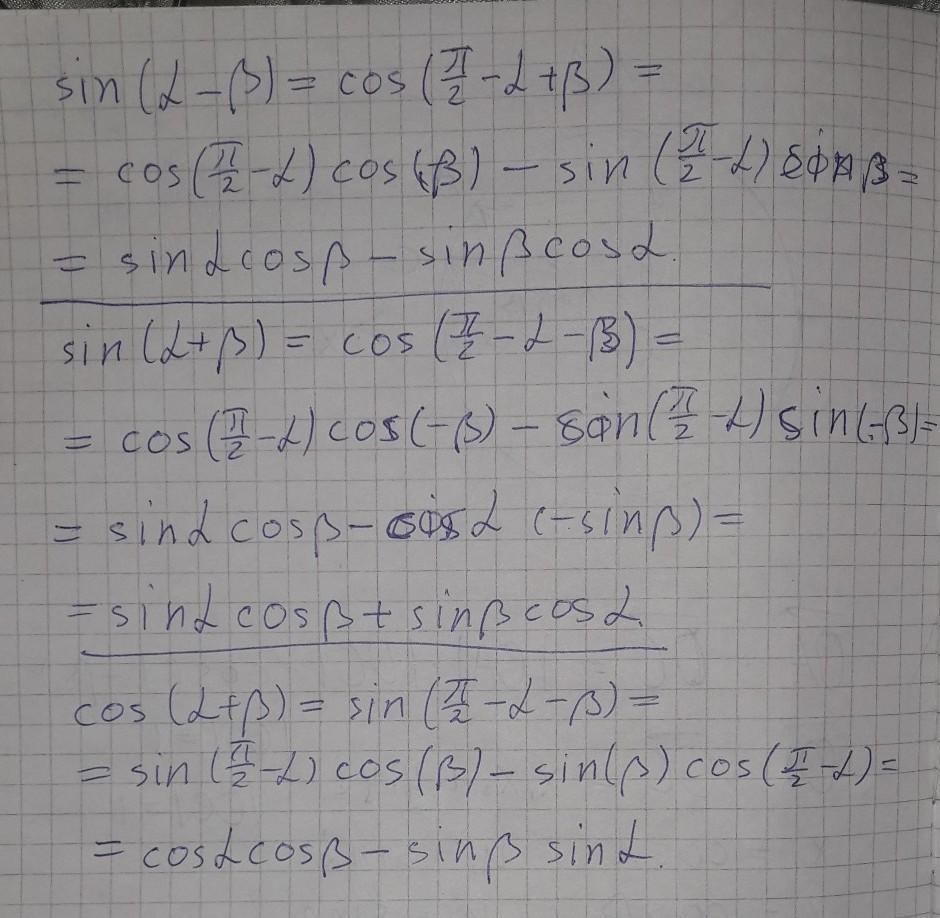 sin (α - β) = cos (π/2 - α + β) =
= cos(π/2 - α) cos(β) - sin (π/2 - α) sin β =
= sin α cos β - sin β cos α.
sin (α + β) = cos (π/2 - α - β) =
= cos (π/2 - α) cos(-β) - sin(π/2 - α) sin(-β) =
= sin α cos β - cos α (- sin β) =
= sin α cos β + sin β cos α.
cos (α + β) = sin (π/2 - α - β) =
= sin (π/2 - α) cos (β) - sin(β) cos (π/2 - α) =
= cos α cos β - sin β sin α.